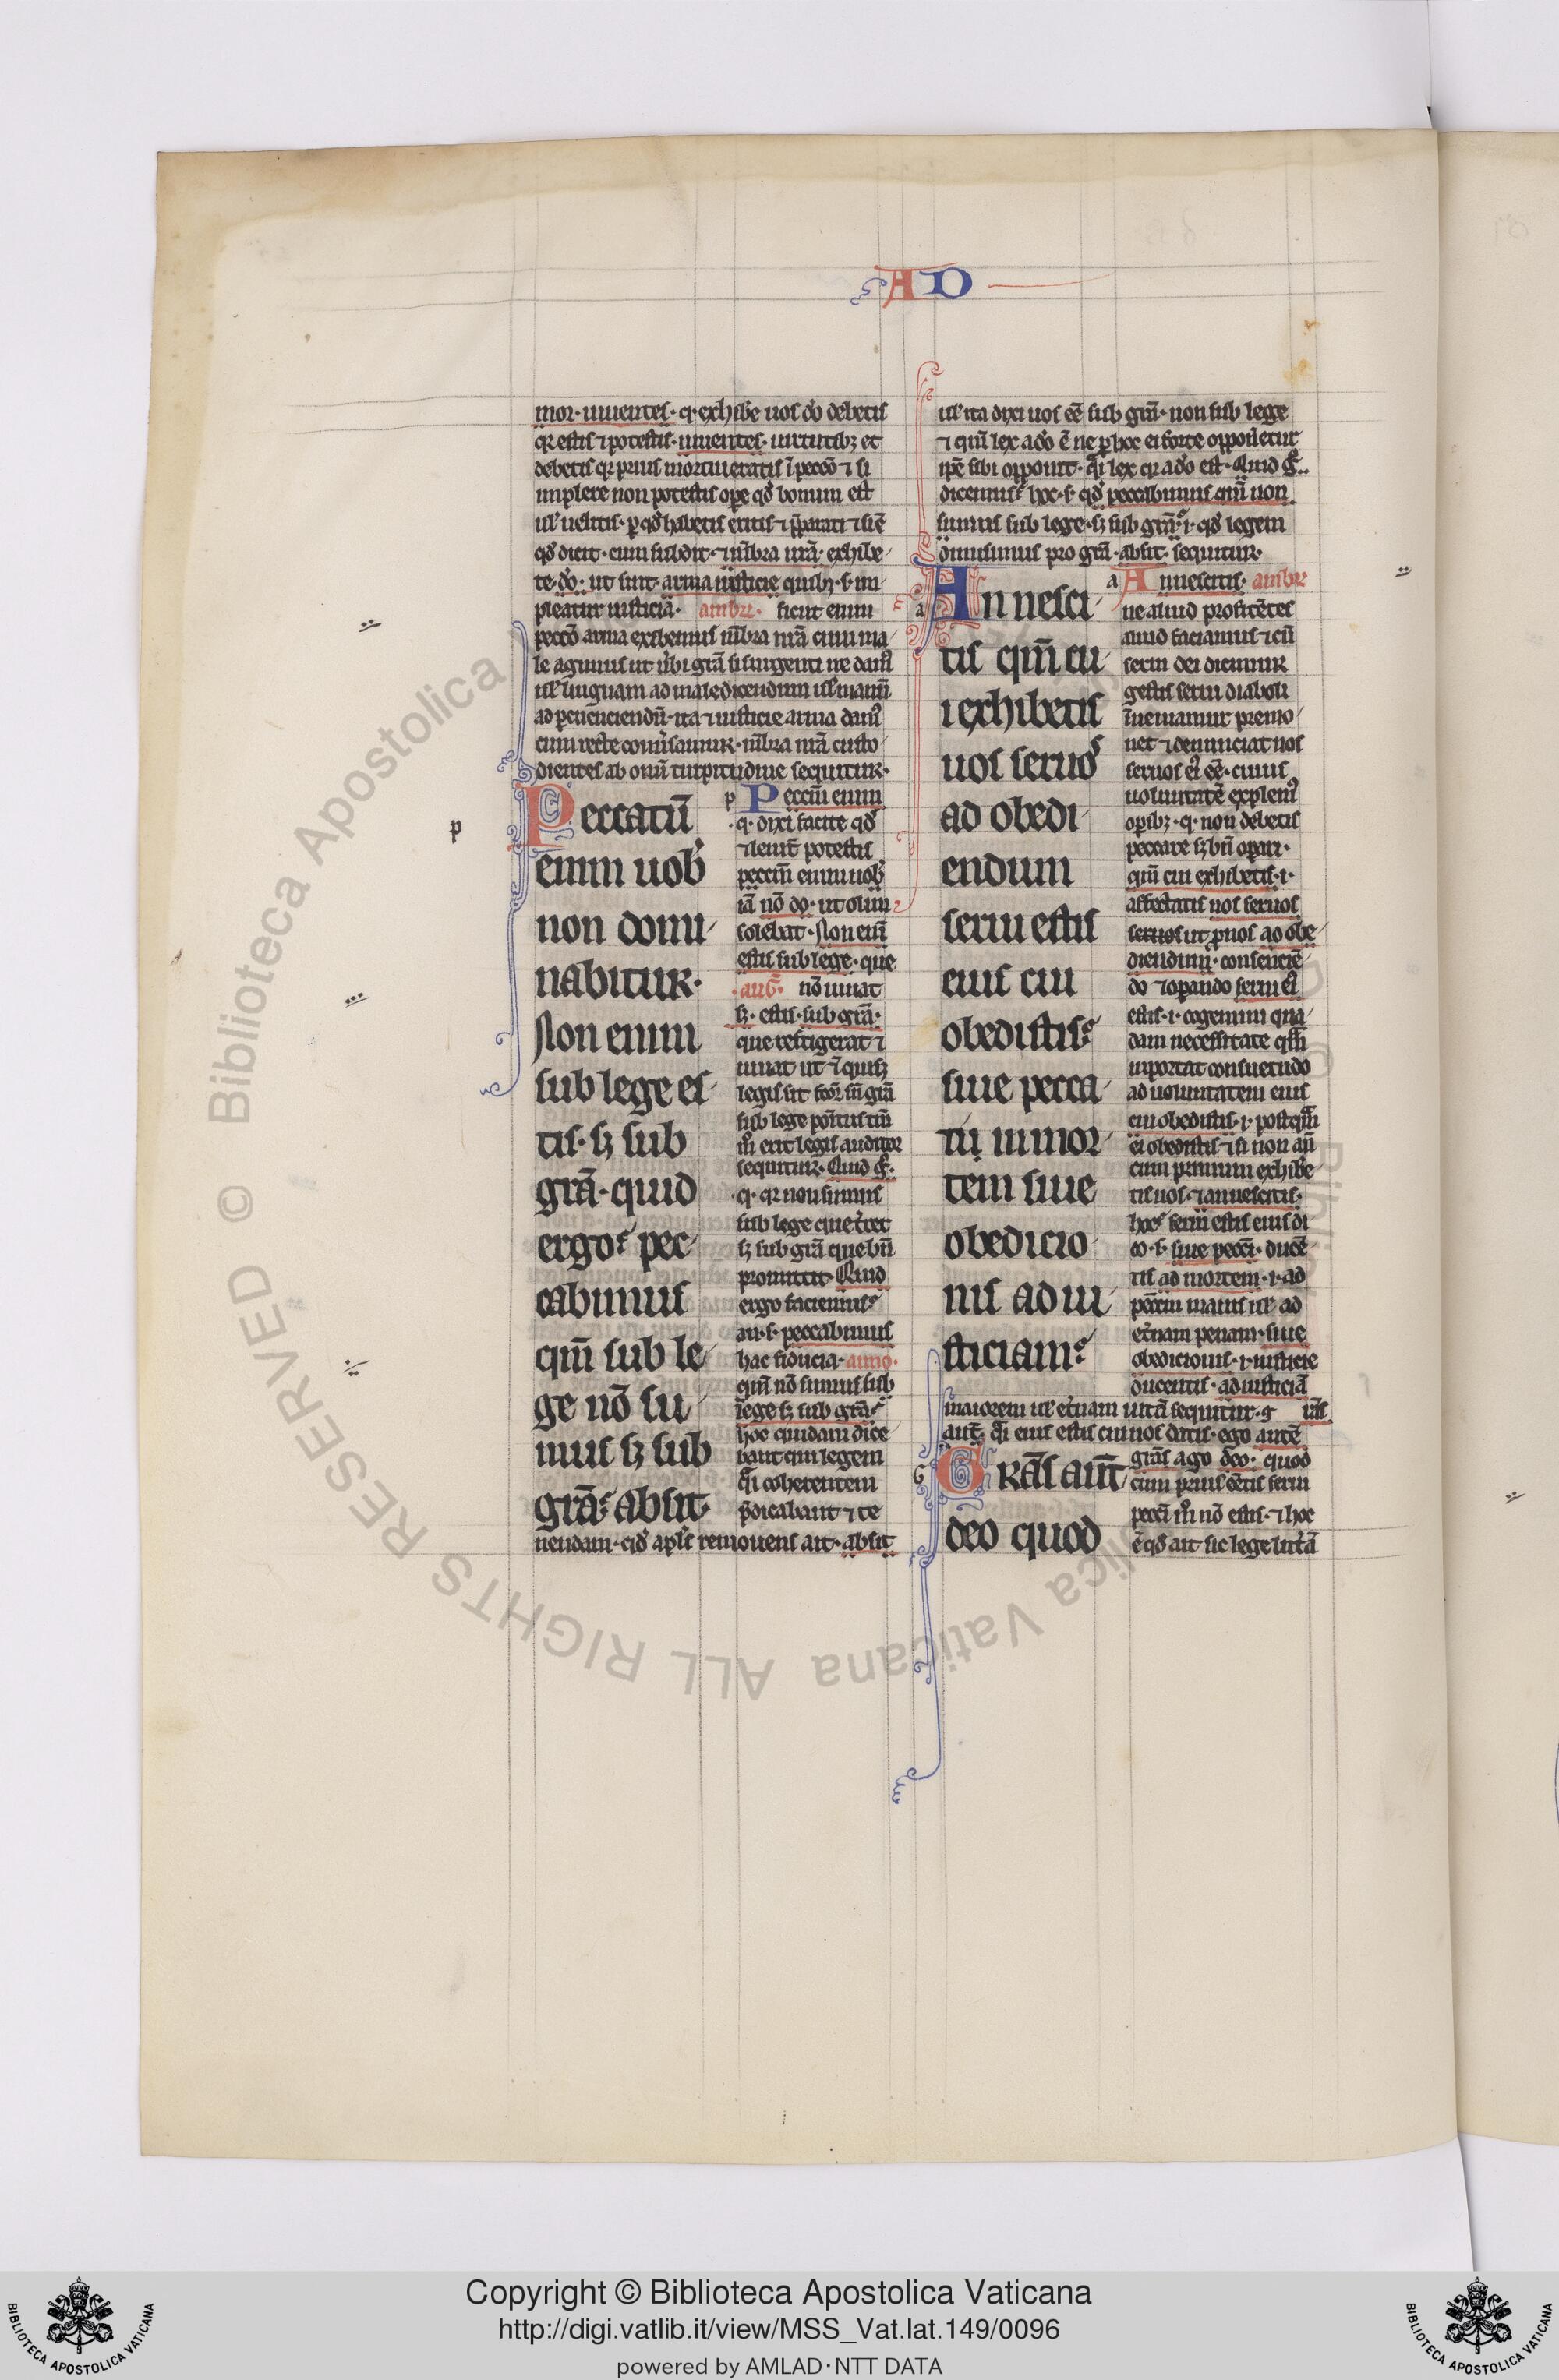 AD
mor· uiuentes· q· exhibe uos do debetis
qr estis ⁊ potestis· uiuentes· uirtutibz et
debetis qr prius mortui eratis ī pecco ⁊ si
implere non potestis ope qd bonum est
ul uelitis· p qd habetis eritis ⁊ pparati ⁊ siē
qd dicit· cum subdit· ⁊ mbra urā· exhibe
te· do· ut sint· arma iusticie quibz· s· im
pleatur iusticia· ambr· sicut enim
pecco arma exibemus mbra nrā cum ma
le agimus ut
ul linguam ad maledicendum ul manū
ad percuciendū· ita ⁊ iusticie arma dam
cum recte conuersamur· mbra nrā custo
dientes ab omi turpitudine sequitur·
Peccatū
enim uob
non domi
nabitur·
Non enim
sub lege es
tis· sz sub
grā· quid
ergo? pec
cabimus
qm̄ sub le
ge nō su
mus sz sub
grā? absit·
p Peccm̄ enim
·q· dixi facite qd
⁊ leuit potestis
peccm̄ enim uob
iā nō do· ut olim
solebat· Non enī
estis sub lege· que
·aug· nō iuuat
sz· estis· sub grā·
que refrigerat ⁊
iuuat ut
legis sit
sub lege
erit legis auditor
sequitur· Quid g·
·q· qr non sumus
sub lege que terret
sz sub grā que bn̄
promittit· Quid
ergo faciemus?
an· s· peccabimus
hac fiducia· aimo·
qm̄ nō sumus sub
lege sz sub grā?
hoc quidam dice
bant qui legem
qi coherentem
pdicabant ⁊ te
nendam· qd apls remouens ait· absit
ul ita dixi uos ēē sub grā· non sub lege
⁊ qm̄ lex a do ē ne p hoc ei forte opponetur
ipē sibi opponit· qi lex qr a do est· Quid g·
dicemus? hoc· s· qd peccabimus qm̄ non
sumus sub lege· sz sub grā? ·i· qd legem
dimisimus pro grā· absit· sequitur·
a An nesci
tis qm̄ cu
i exhibetis
uos seruos
ad obedi
endum
serui estis
eius cui
obedistis?
siue pecca
tū in mor
tem siue
obedicio
nis ad iu
sticiam?
a An nescitis· ambr
ne aliud profitētes
aliud faciamus ⁊ cū
serui dei dicimur
gestis serui diaboli
īueniamur premo
net ⁊ denunciat nos
seruos ei ēē· cuius
uoluntatē explem
opibz· q· non debetis
peccare sz bn̄ opari·
qm̄ cui exhibetis· i·
affectatis uos seruos
seruos ut pnos ad obe
diendum· consencie
do ⁊ opando serui ei
estis· i· cogemini qua
dam necessitate qm̄
inportat consuetudo
ad uoluntatem eius
cui obedistis· i· postqm̄
ei obedistis ⁊ si non an̄
cum primum exhibe
tis uos· ⁊ an nescitis·
hoc? serui estis eius di
co· s· siue pecci· ducē
tis ad mortem· i· ad
peccm maius ul ad
eternam penam· siue
obedicionis· i· iusticie
ducentis· ad iusticiā
maiorem ul eternam uitā sequitur· g rās
aut· qi eius estis cui uos datis· ego autē
G Grās aut
deo quod
grās ago deo· quod
cum prius eētis serui
pecci m nō estis· ⁊ hoc
ē qd ait sic lege
p
Copyright © Biblioteca Apostolica Vaticana
http://digi.vatlib.it/view/MSS_Vat.lat.149/0096
powered by AMLAD·NTT DATA
BIBLIOTECA APOSTOLICA VATICANA
BIBLIOTECA APOSTOLICA VATICANA
© Biblioteca Apostolica Vaticana ALL RIGHTS RESERVED